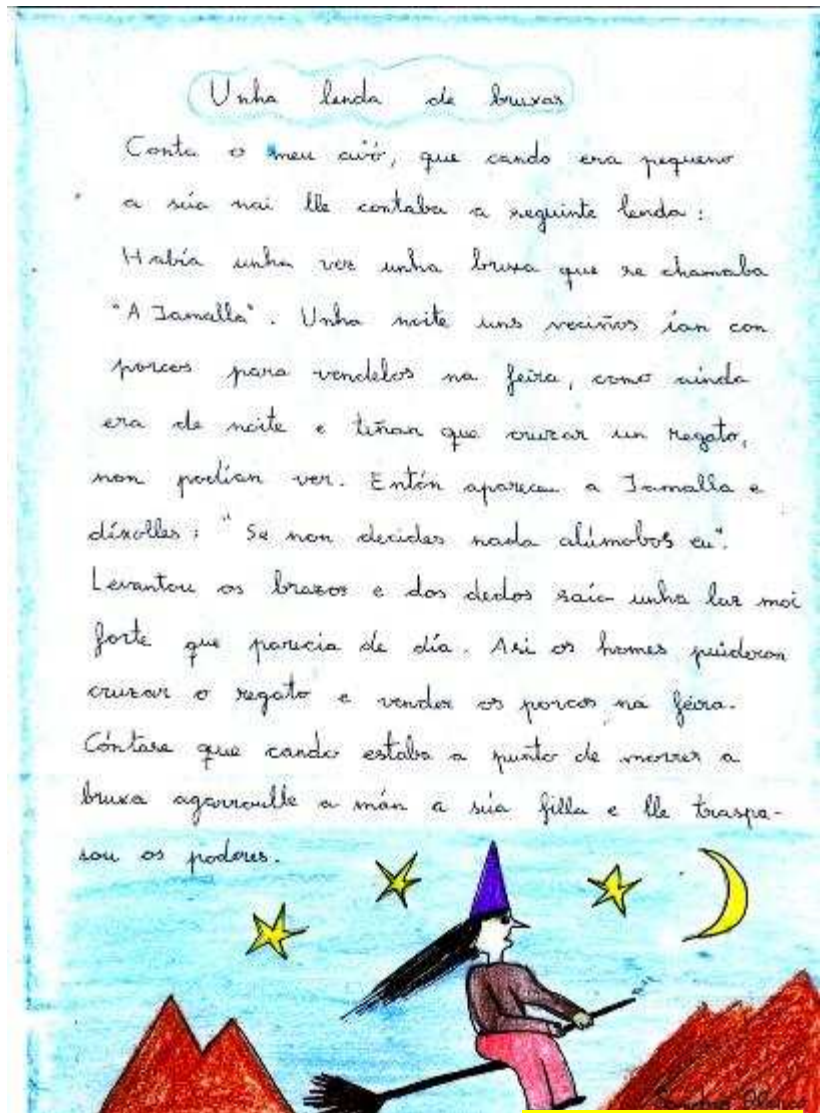 Unha lenda de bruxas
Conta o meu avó, que cando era pequeno
a súa nai lle contaba a seguinte lenda:
Había unha vez unha bruxa que se chamaba
"A Jamalla". Unha noite uns veciños ían con
porcos para vendelos na feira, como aínda
era de noite e tiñan que cruzar un regato,
non podían ver. Entón apareceu a Jamalla e
díxolles: "Se non decides nada alúmobos eu".
Levantou os brazos e dos dedos saía unha luz moi
forte que parecia de día. Asi os homes puideron
cruzar o regato e vender os porcos na feira.
Cóntase que cando estaba a punto de morrer a
bruxa agarroulle a mán a súa filla e lle traspa-
sou os poderes.